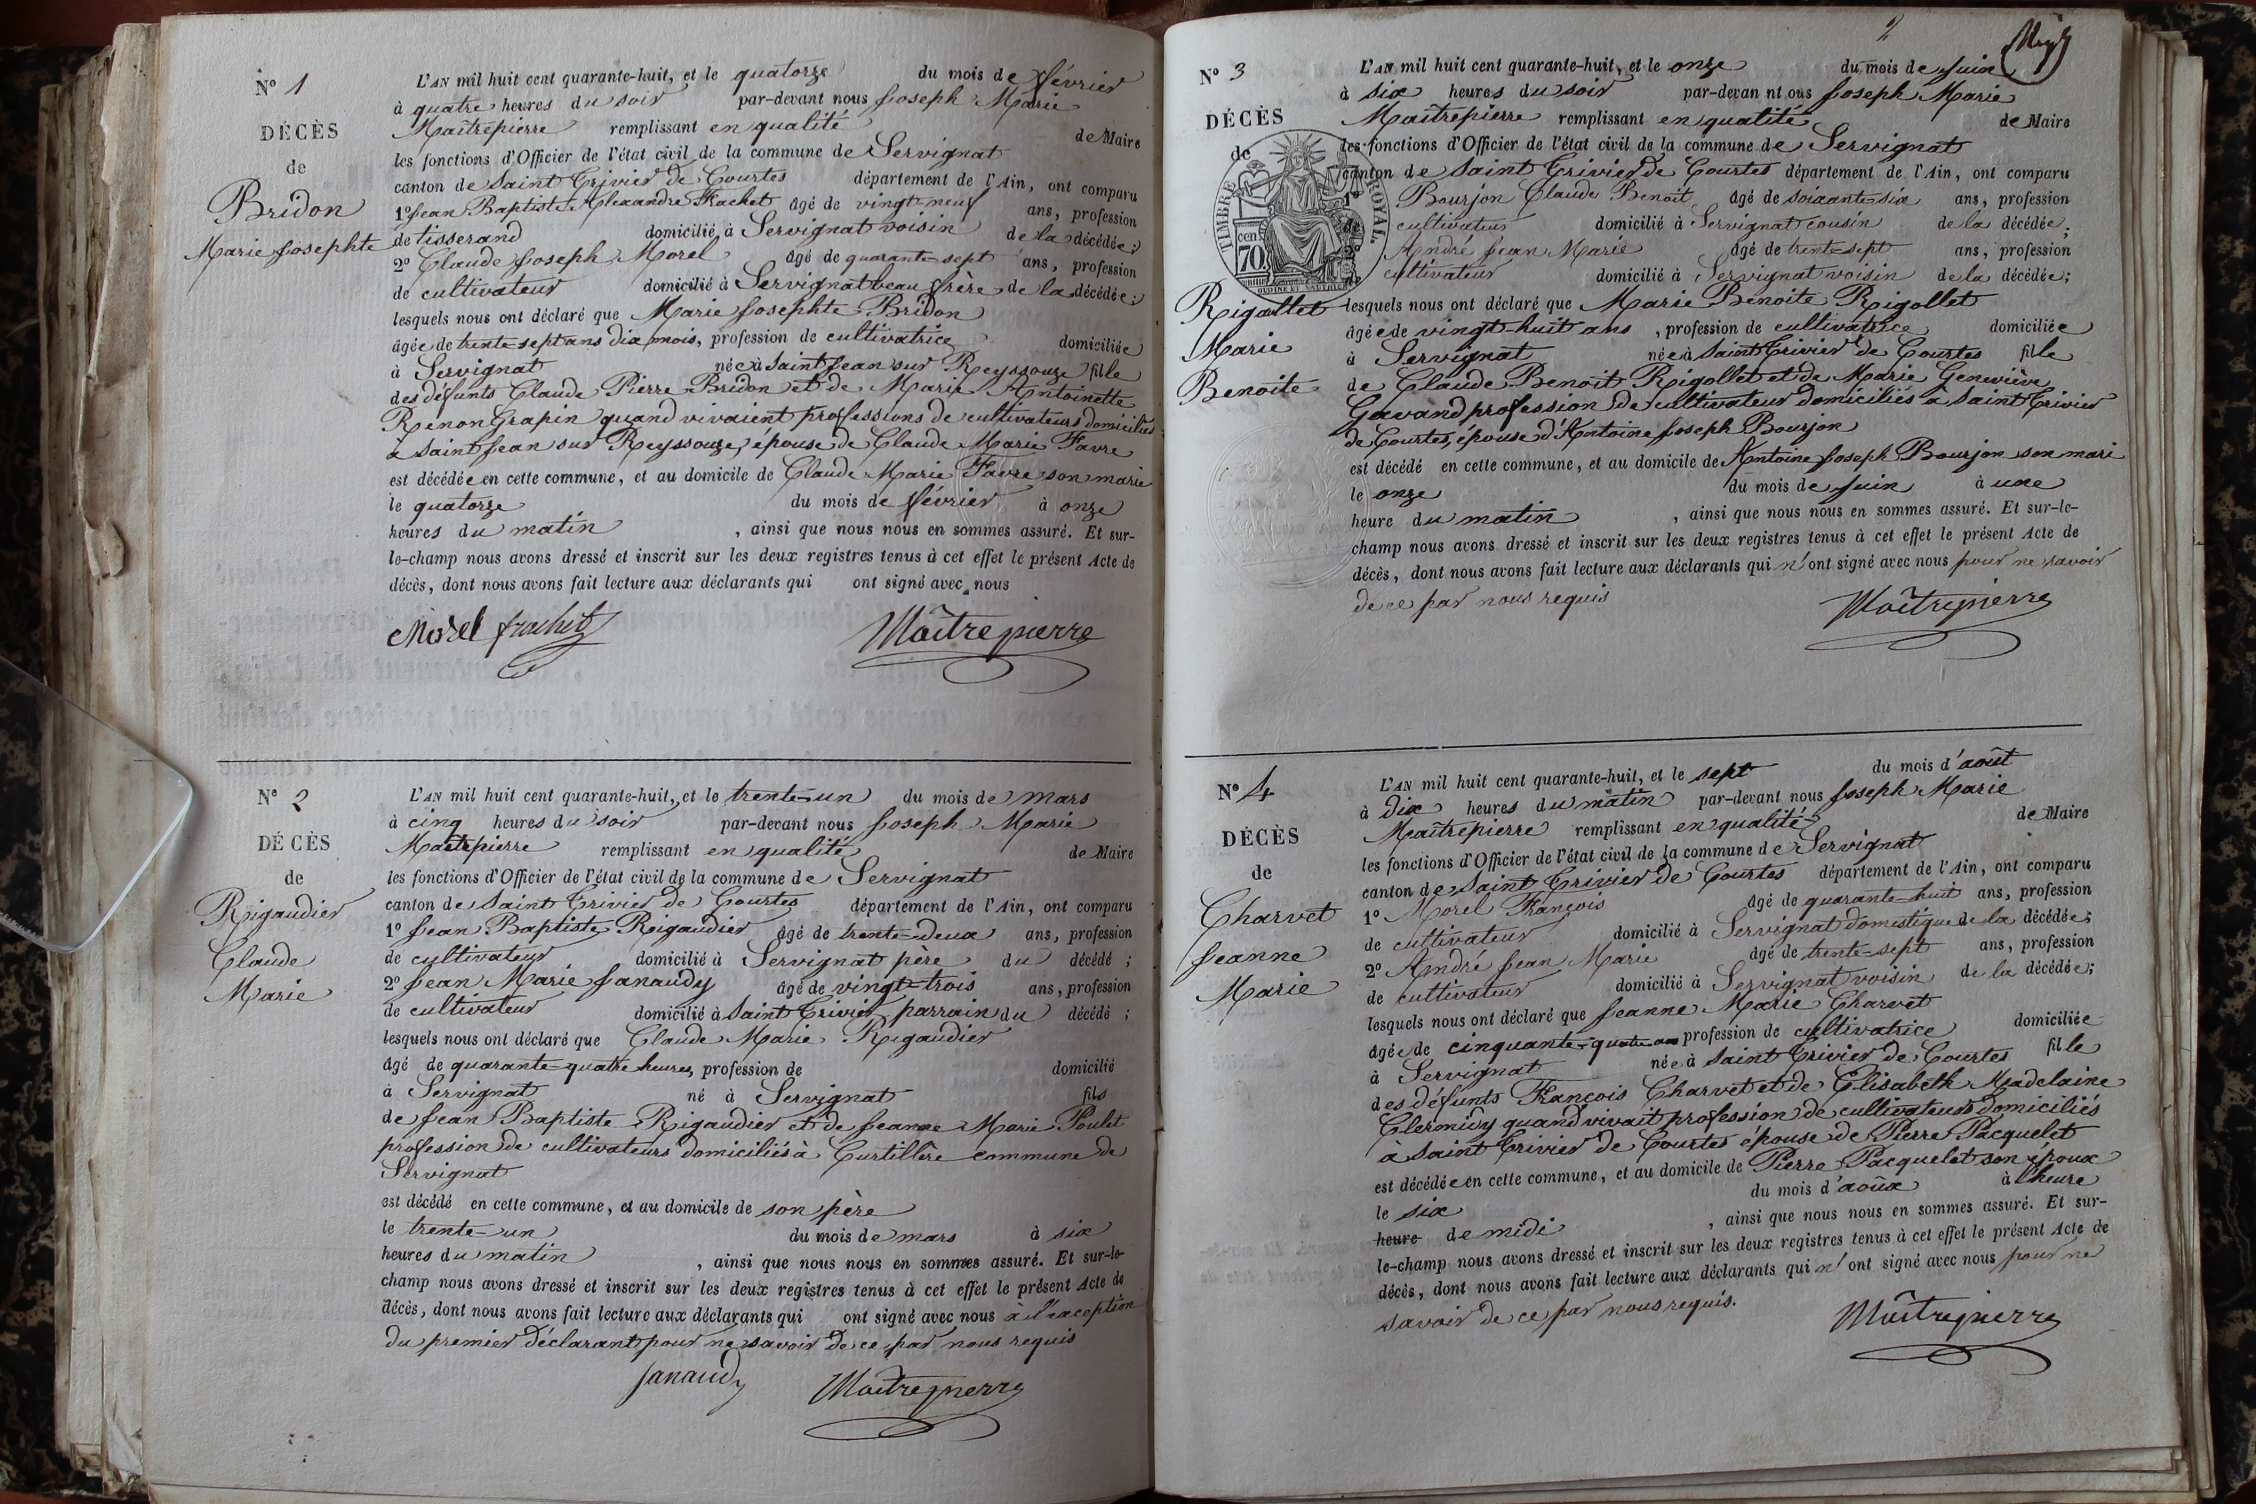 N° 1
DÉCÈS
de
Bridon
Marie Josephte
L'AN mil huit cent quarante-huit, et le quatorze du mois de février
à quatre heures du soir par-devant nous Joseph Marie
Maîtrepierre remplissant en qualité de Maire
les fonctions d'Officier de l'état civil de la commune de Servignat
canton de Saint Trivier de Courtes département de l'Ain, ont comparu
1° Jean Baptiste Alexandre Frachet âgé de vingt-neuf ans, profession
de tisserand domicilié à Servignat voisin de la décédée;
2° Claude Joseph Morel âgé de quarante-sept ans, profession
de cultivateur domicilié à Servignat beau frère de la décédée;
lesquels nous ont déclaré que Marie Josephte Bridon
âgée de trente-sept ans dix mois, profession de cultivatrice domiciliée
à Servignat née à Saint Jean sur Reyssouze fille
des défunts Claude Pierre Bridon et de Marie Antoinette
Renon Grapin quand vivaient professions de cultivateurs domiciliés
à Saint Jean sur Reyssouze, épouse de Claude Marie Favre
est décédée en cette commune, et au domicile de Claude Marie Favre son marie
le quatorze du mois de février à onze
heures du matin, ainsi que nous nous en sommes assuré. Et sur-
le-champ nous avons dressé et inscrit sur les deux registres tenus à cet effet le présent Acte de
décès, dont nous avons fait lecture aux déclarants qui ont signé avec nous
Morel frachet Maîtrepierre
N° 2
DÉCÈS
de
Rigaudier
Claude
Marie
L'AN mil huit cent quarante-huit, et le trente-un du mois de mars
à cinq heures du soir par-devant nous Joseph Marie
Maîtrepierre remplissant en qualité de Maire
les fonctions d'Officier de l'état civil de la commune de Servignat
canton de Saint Trivier de Courtes département de l'Ain, ont comparu
1° Jean Baptiste Rigaudier âgé de trente-deux ans, profession
de cultivateur domicilié à Servignat père du décédé;
2° Jean Marie Janaudy âgé de vingt-trois ans, profession
de cultivateur domicilié à Saint Trivier parrain du décédé;
lesquels nous ont déclaré que Claude Marie Rigaudier
âgé de quarante-quatre heures, profession de domicilié
à Servignat né à Servignat fils
de Jean Baptiste Rigaudier et de Jeanne Marie Poulet
profession de cultivateurs domiciliés à Curtillère commune de
Servignat
est décédé en cette commune, et au domicile de son père
le trente-un du mois de mars à six
heures du matin, ainsi que nous nous en sommes assuré. Et sur-le-
champ nous avons dressé et inscrit sur les deux registres tenus à cet effet le présent Acte de
décès, dont nous avons fait lecture aux déclarants qui ont signé avec nous à l'exception
du premier déclarant pour ne savoir de ce par nous requis
Janaudy Maîtrepierre
2
N° 3
DÉCÈS
de
TIMBRE ROYAL
70 cent
Rigollet
Marie
Benoite
L'AN mil huit cent quarante-huit, et le onze du mois de Juin
à six heures du soir par-devan nt ous Joseph Marie
Maîtrepierre remplissant en qualité de Maire
les fonctions d'Officier de l'état civil de la commune de Servignat
canton de Saint Trivier de Courtes département de l'Ain, ont comparu
1° Bourjon Claude Benoit âgé de soixante-six ans, profession
de cultivateur domicilié à Servignat cousin de la décédée;
2° André Jean Marie âgé de trente-sept ans, profession
de cultivateur domicilié à Servignat voisin de la décédée;
lesquels nous ont déclaré que Marie Benoite Rigollet
âgée de vingt-huit ans, profession de cultivatrice domiciliée
à Servignat née à Saint Trivier de Courtes fille
de Claude Benoit Rigollet et de Marie Geneviève
Gavand profession de cultivateur domiciliés à Saint Trivier
de Courtes, épouse d'Antoine Joseph Bourjon
est décédé en cette commune, et au domicile de Antoine Joseph Bourjon son mari
le onze du mois de Juin à une
heure du matin, ainsi que nous nous en sommes assuré. Et sur-le-
champ nous avons dressé et inscrit sur les deux registres tenus à cet effet le présent Acte de
décès, dont nous avons fait lecture aux déclarants qui n'ont signé avec nous pour ne savoir
de ce par nous requis
Maîtrepierre
N° 4
DÉCÈS
de
Charvet
Jeanne
Marie
L'AN mil huit cent quarante-huit, et le sept du mois d'août
à dix heures du matin par-devant nous Joseph Marie
Maîtrepierre remplissant en qualité de Maire
les fonctions d'Officier de l'état civil de la commune de Servignat
canton de Saint Trivier de Courtes département de l'Ain, ont comparu
1° Morel François âgé de quarante-huit ans, profession
de cultivateur domicilié à Servignat domestique de la décédée;
2° André Jean Marie âgé de trente-sept ans, profession
de cultivateur domicilié à Servignat voisin de la décédée;
lesquels nous ont déclaré que Jeanne Marie Charvet
âgée de cinquante-quatre ans profession de cultivatrice domiciliée
à Servignat née à Saint Trivier de Courtes fille
des défunts François Charvet et de Élisabeth Madelaine
Clermidy quand vivait profession de cultivateurs domiciliés
à Saint Trivier de Courtes épouse de Pierre Pacquelet
est décédée en cette commune, et au domicile de Pierre Pacquelet son époux
le six du mois d'août à l'heure
heure de midi, ainsi que nous nous en sommes assuré. Et sur-
le-champ nous avons dressé et inscrit sur les deux registres tenus à cet effet le présent Acte de
décès, dont nous avons fait lecture aux déclarants qui n'ont signé avec nous pour ne
savoir de ce par nous requis.
Maîtrepierre